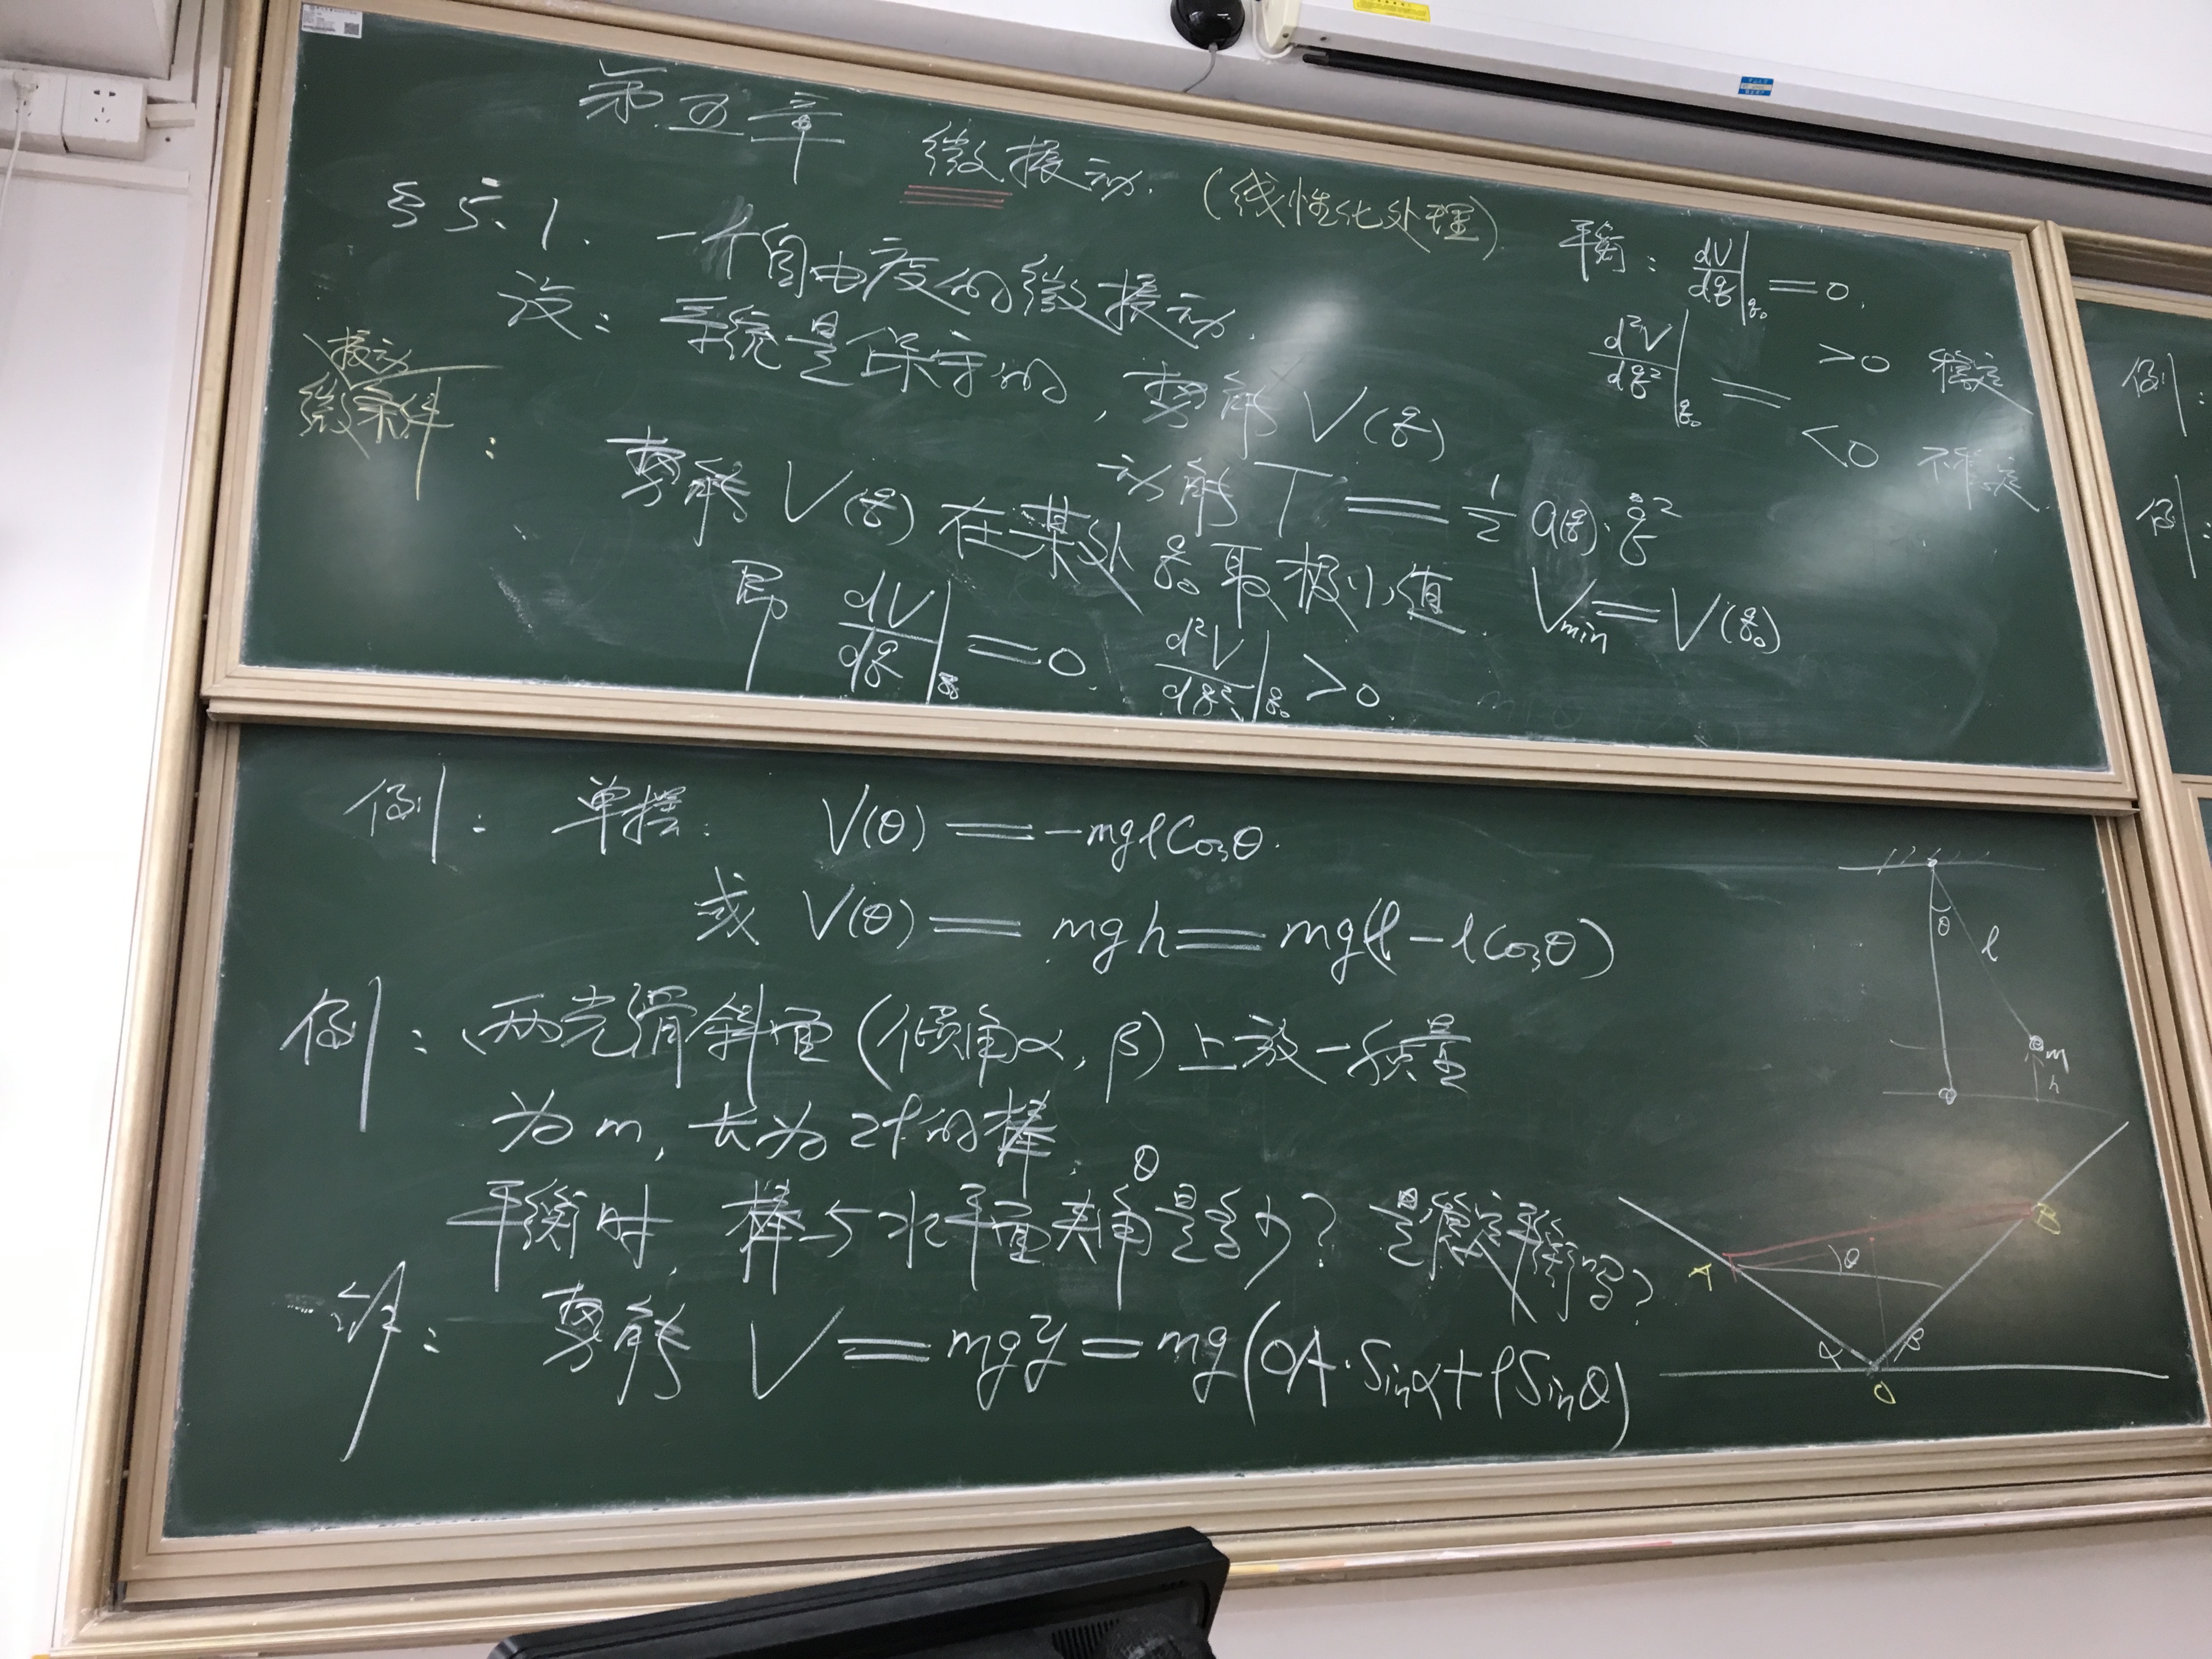 第五章 微振动 (线性化处理)
§5.1. 一个自由度的微振动.
设: 系统是保守的, 势能 V(q)
动能 T = 1/2 a(q)·q̇²
振动
微条件:
势能 V(q) 在某处 q₀ 取极小值. Vmin = V(q₀)
即 dV/dq|q₀ = 0. d²V/dq²|q₀ > 0.
平衡: dV/dq|q₀ = 0.
d²V/dq²|q₀ = >0 稳定
<0 不稳定.
例:
例:
例: 单摆: V(θ) = -mgl Cosθ.
或 V(θ) = mgh = mg(l - lCosθ)
θ
l
m
h
例: 两光滑斜面(倾角α, β)上放一质量
为m, 长为2l的棒.
平衡时, 棒与水平面夹角θ是多少? 是稳定平衡吗?
解: 势能 V = mgy = mg(OA·Sinα + lSinθ)
A
B
θ
α
β
O